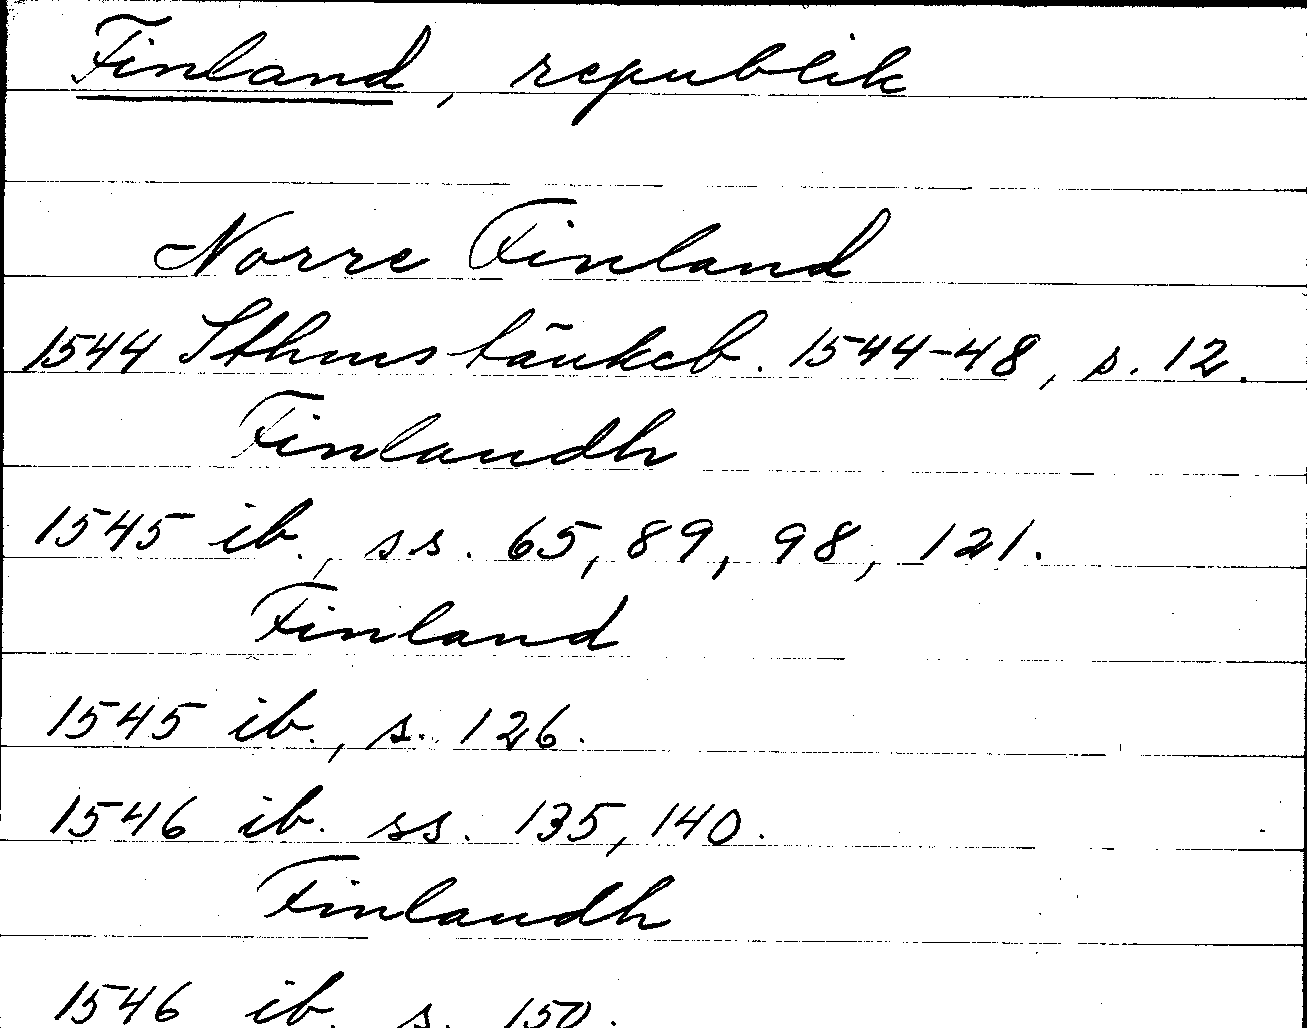 Finland, republik
Norre Finland
1544 Sthms tänkeb. 1544-48, s. 12.
Finlandh
1545 ib., ss. 65, 89, 98, 121.
Finland
1545 ib., s. 126.
1546 ib. ss. 135, 140.
Finlandh
1546 ib. s. 150.